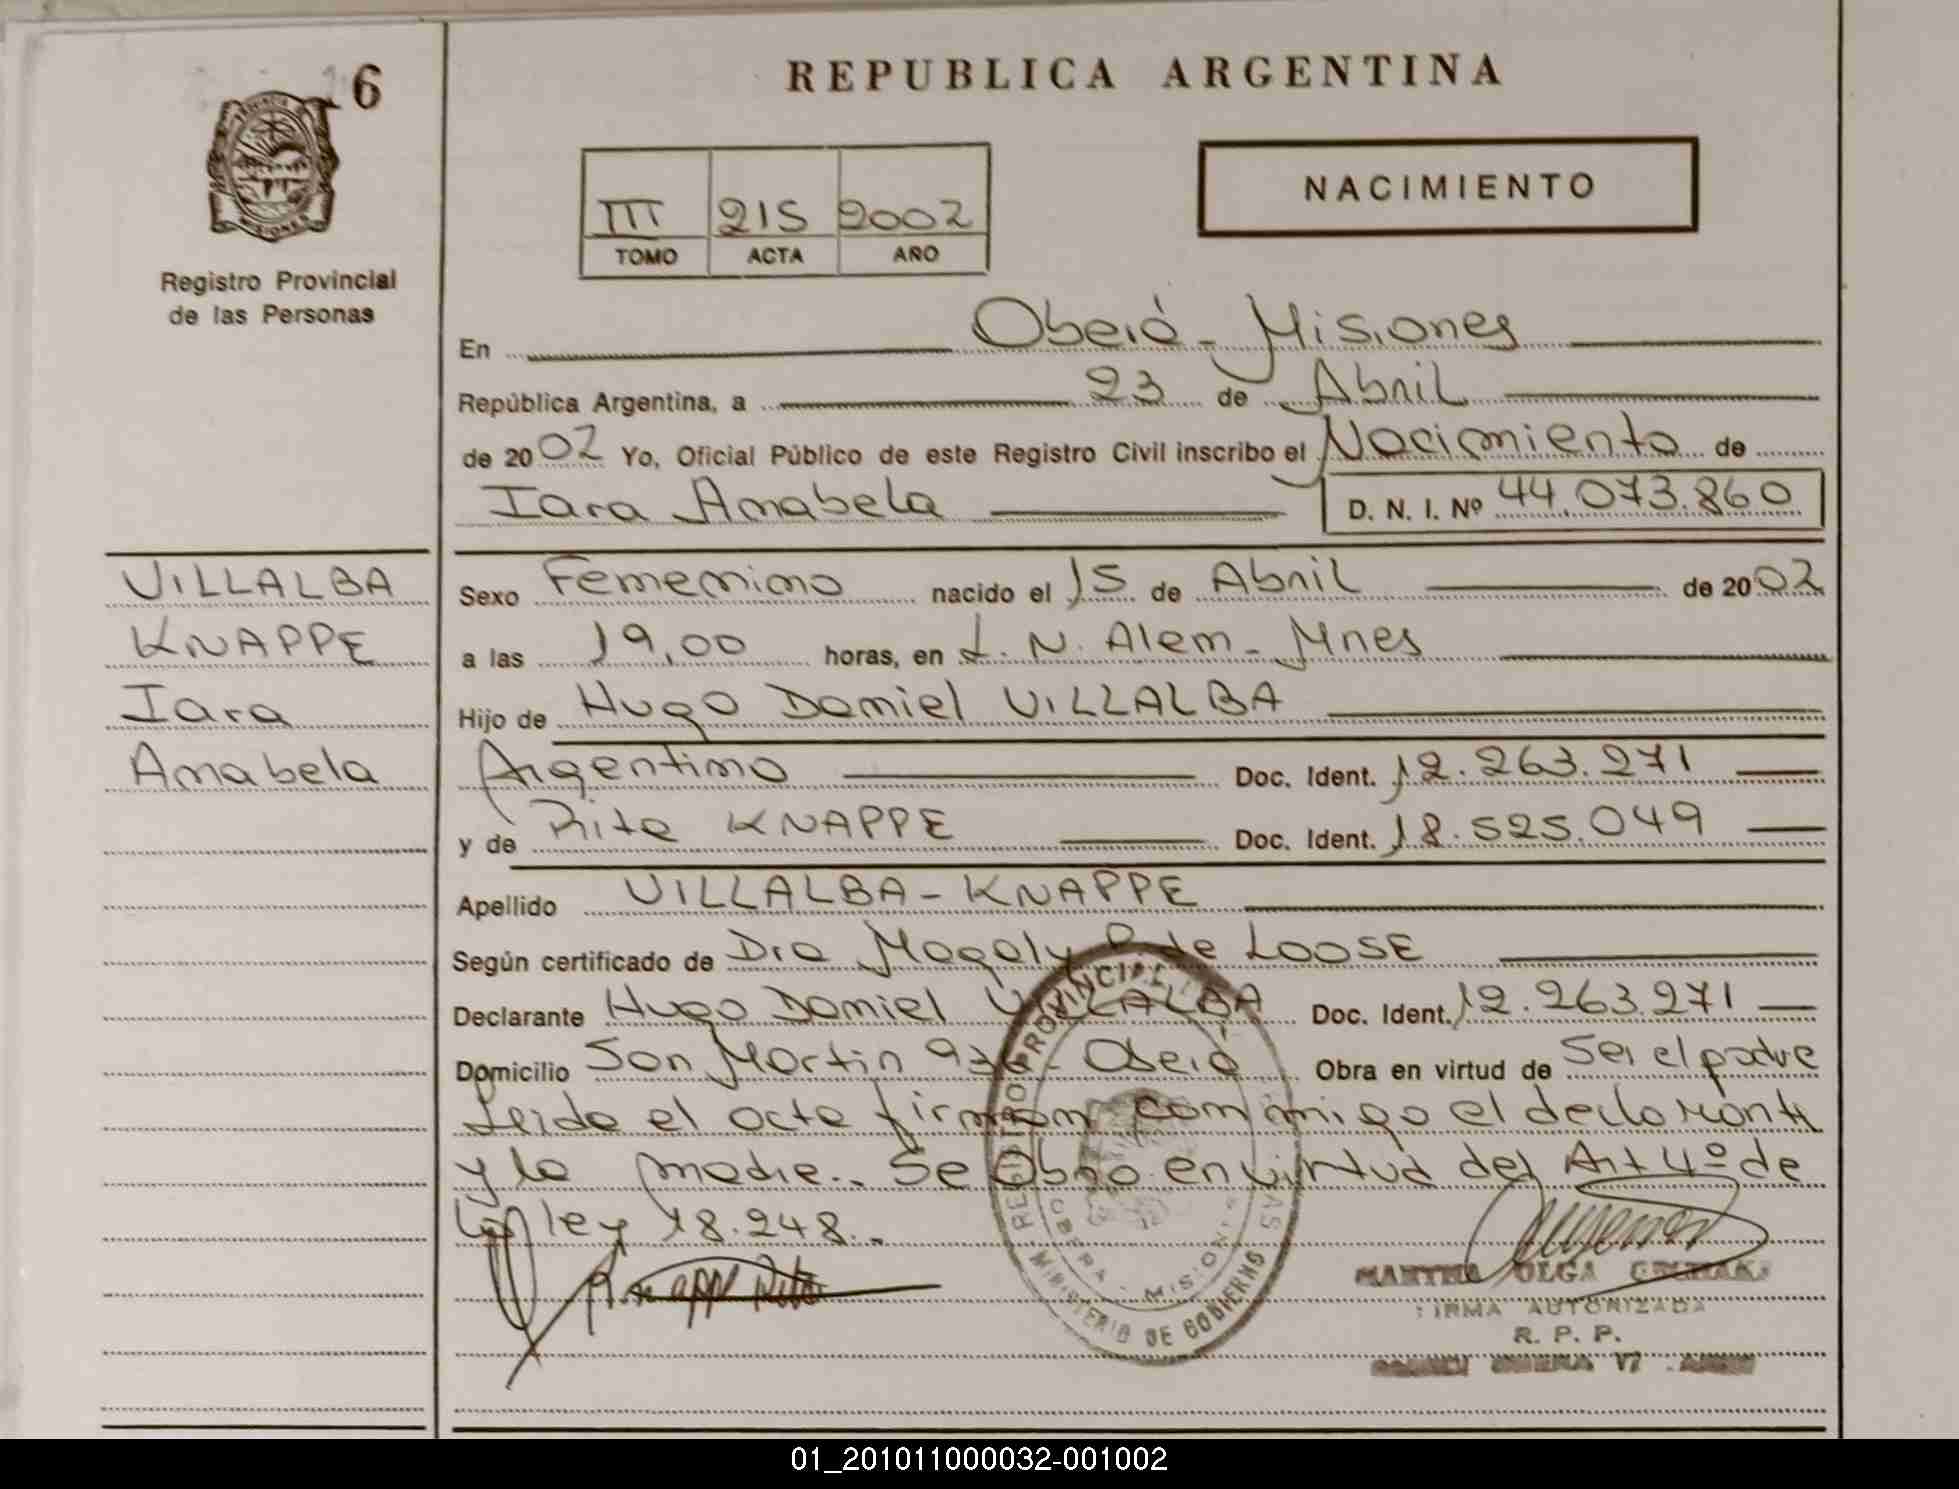 6
REPUBLICA ARGENTINA
NACIMIENTO
III 215 2002
TOMO ACTA AÑO
Registro Provincial
de las Personas
En Oberá - Misiones
República Argentina, a 23 de Abril
de 2002 Yo, Oficial Público de este Registro Civil inscribo el Nacimiento de
Iara Anabela
D. N. I. Nº 44.073.860
VILLALBA
KNAPPE
Iara
Anabela
Sexo Femenino nacido el 15 de Abril de 2002
a las 19,00 horas, en L. N. Alem - Mnes
Hijo de Hugo Daniel VILLALBA
Argentino Doc. Ident. 12.263.271
y de Rita KNAPPE Doc. Ident. 18.525.049
Apellido VILLALBA - KNAPPE
Según certificado de Dra Magaly P. de LOOSE
Declarante Hugo Daniel VILLALBA Doc. Ident. 12.263.271
Domicilio San Martin 936 - Oberá Obra en virtud de Ser el padre
Leida el acta firman conmigo el declarante
y la madre.. Se Obro en virtud del Art 4º de
la ley 18.248..
REGISTRO PROVINCIAL
OBERA - MISIONES
MINISTERIO DE GOBIERNO
MARTHA OLGA
FIRMA AUTORIZADA
R. P. P.
01_201011000032-001002